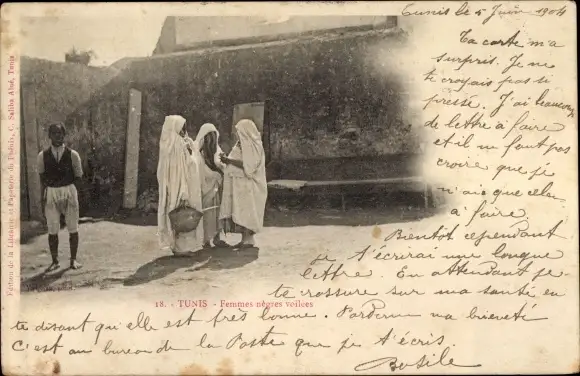 Tunis le 5 Juin 1904
Ta carte m'a
surpris. Je ne
te croyais pas si
pressé. J'ai beaucoup
de lettre à faire
et il ne faut pas
croire que je
n'aie que celles
à faire.
Bientôt cependant
je t'écrirai une longue
lettre. En attendant je
te rassure sur ma santé en
te disant qu'elle est très bonne. Pardonne ma brièveté
C'est au bureau de la Poste que je t'écris.
Basile
18. - TUNIS - Femmes nègres voilées
Editeur de la Librairie et Papeterie du Phénix, C. Saliba Aîné, Tunis